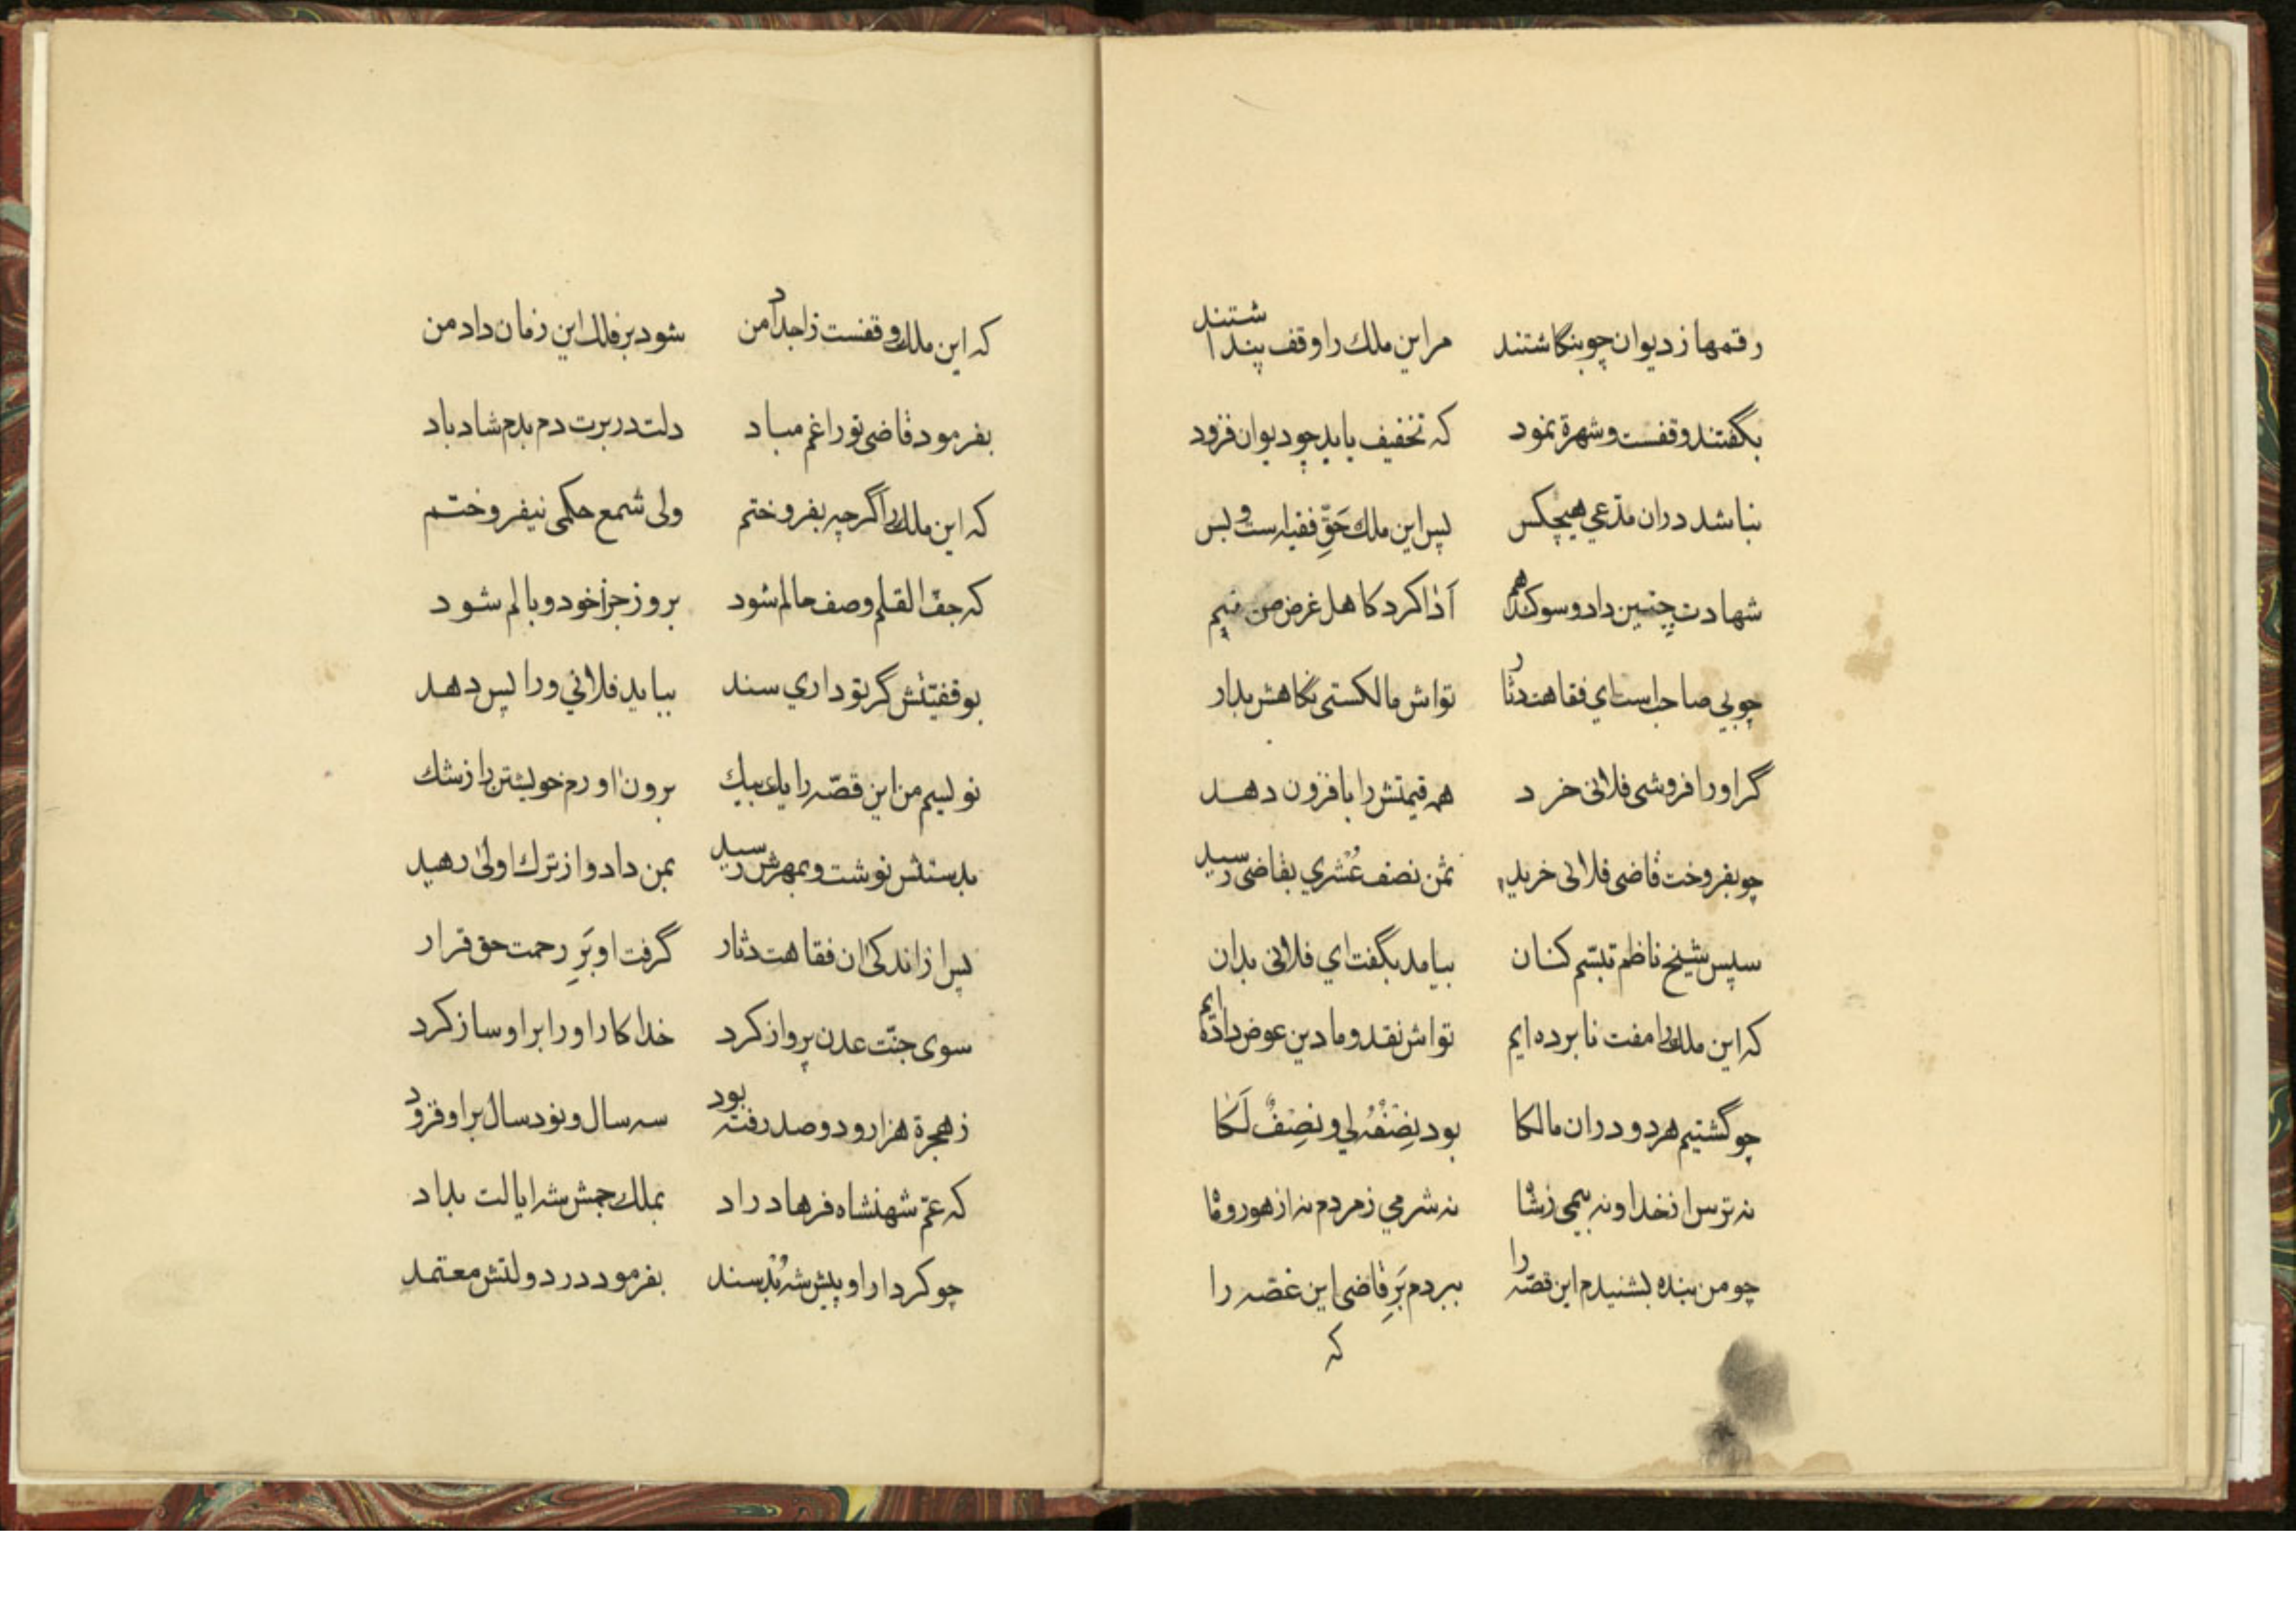 رقمها ز دیوان چو بنگاشتند مر این ملك را وقف پنداشتند
بگفتند وقفست و شهرة نمود كه تخفیف باید چو دیوان فزود
نباشد دران مدّعي هیچکس پس این ملك حَقِّ فقیه است و بس
شهادت چنین داد و سوکند هم اَدا کرد کاهل غرض من نیم
چو بي صاحب است اي فقاهت دثار تواش مالکستی نگاهش بدار
گر اورا فروشی فلانی خرد همه قیمتش را با فزون دهد
چو بفروخت قاضی فلانی خرید ثمن نصف عُشري بقاضی رسید
سپس شیخ ناظم تبسّم کنان بیامد بگفت اي فلانی بدان
که این ملك را مفت نابرده ایم تواش نقد و ما دین عوض داده ایم
چو گشتیم هر دو دران مالکا بود نِصْفُهُ لِي و نِصْفٌ لَكَا
نه ترس از خدا و نه بیمی ز شا نه شرمي ز مردم نه از هور و ما
چو من بنده بشنیدم این قصّه را ببردم بَرِ قاضی این غصّه را
که
که این ملك وقفست ز اجداد من شود بر فلك این زمان داد من
بفرمود قاضی تورا غم مباد دلت در برت دم بدم شاد باد
که این ملك را گرچه بفروختم ولی شمع حکمی نیفروختم
که جفّ القلم وصف حالم شود بروز جزا خود وبالم شود
بوقفیّتش گر تو داري سند بباید فلاني ورا پس دهد
نویسم من این قصّه را یك بیك برون آورم خویشتن را ز شك
بدستش نوشت و بمهرش رسید بمن داد و از ترك اولیٰ رهید
پس از اندکی ان فقاهت دثار گرفت او بَرِ رحمت حق قرار
سوی جنّت عدن پرواز کرد خدا کار اورا بر او ساز کرد
ز هجرة هزار و دو صد رفته بود سه سال و نود سال بر او فزود
که عمّ شهنشاه فرهاد راد بملك جمش شه ایالت بداد
چو کردار او پیش شه بُد سند بفرمود در دولتش معتمد